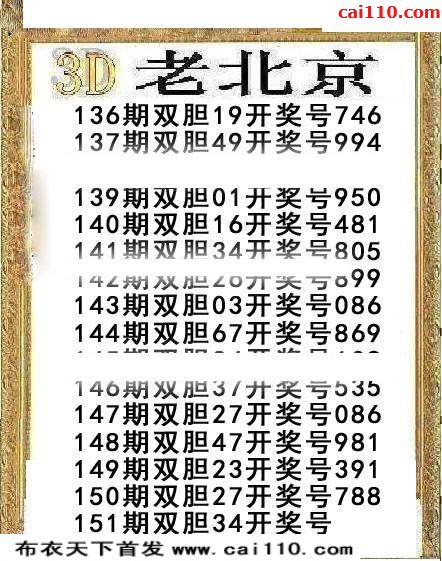 cai110.com
3D 老北京
136期双胆19开奖号746
137期双胆49开奖号994
139期双胆01开奖号950
140期双胆16开奖号481
141期双胆34开奖号805
142期双胆26开奖号899
143期双胆03开奖号086
144期双胆67开奖号869
146期双胆37开奖号535
147期双胆27开奖号086
148期双胆47开奖号981
149期双胆23开奖号391
150期双胆27开奖号788
151期双胆34开奖号
布衣天下首发 www.cai110.com